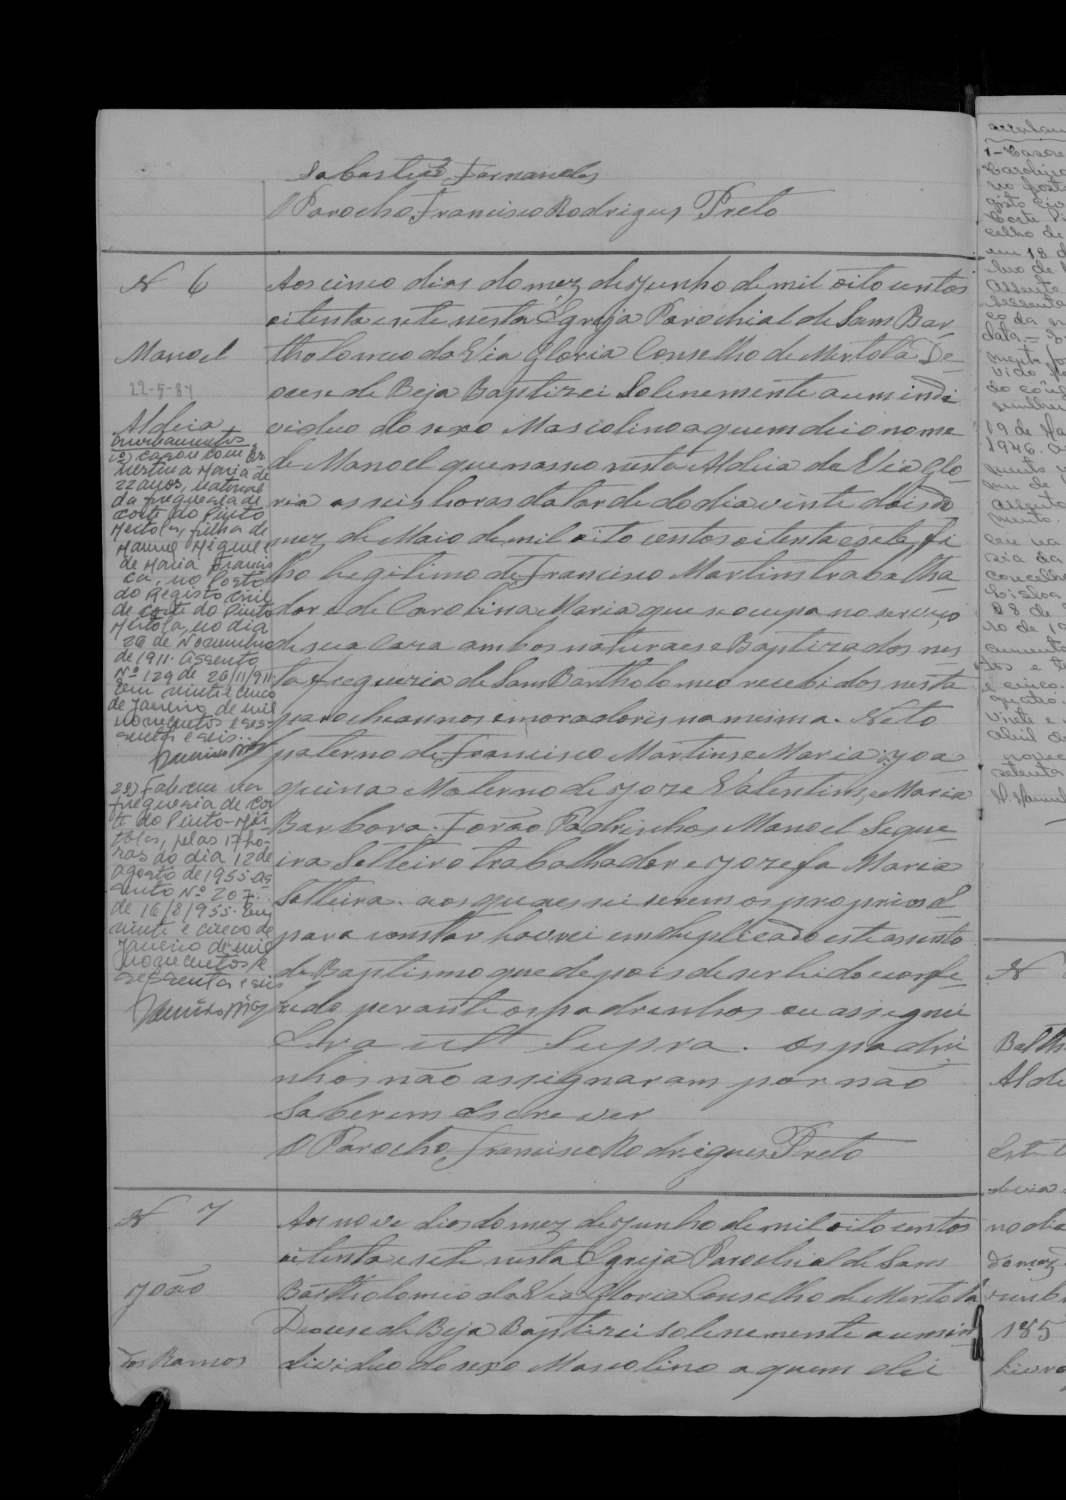 Sebastião Fernandes
O Parocho Francisco Rodrigues Preto
N 6
Manoel
22-5-87
Aldeia
Averbamentos
1º) Casou com Er
nestina Maria de
22 anos, natural
da freguesia de
Corte do Pinto
Mertola, filha de
Manuel Miguel e
de Maria Francis
ca, no Posto
do Registo Civil
de Corte do Pinto
Mertola, no dia
26 de Novembro
de 1911. Assento
Nº 129 de 26/11/911
Em vinte e cinco
de Janeiro de mil
novecentos e ses-
senta e seis.
2º) Faleceu na
freguesia de Cor
te do Pinto-Mér
tola, pelas 17 ho-
ras do dia 12 de
agosto de 1955. As
sento Nº 207.
de 16/8/955. Em
vinte e cinco de
Janeiro de mil
novecentos e
sessenta e seis
Aos cinco dias do mez de Junho de mil oito centos
oitenta e sete nesta Egreja Parochial de Sam Bar-
tholomeo da Via Gloria Conselho de Mertola De-
ocese de Beja Baptizei Solenemente a um indi
viduo do sexo Mascolino a quem dei o nome
de Manoel que nasceu nesta Aldeia da Via Glo
ria as seis horas da tarde do dia vinte dois do
mez de Maio de mil oito centos oitenta e sete fi
lho legitimo de Francisco Martins trabalha
dor e de Carolina Maria que se ocupa no serviço
de sua caza ambos naturaes e Baptizados nes
ta freguezia de Sam Bartholomeo recebidos nesta
parocheannos e moradores na mesma. Neto
paterno de Francisco Martins e Maria Joa-
quina Materno de Joze Valentim, e Maria
Barbora. Forão Padrinhos Manoel Seque
ira Solteiro trabalhador e Jozefa Maria
Solteira. aos quaes sei serem os proprios E
para constar lavrei em duplicado este assento
de Baptismo que depois de ser lido e confe-
rido perante os padrinhos eu assignei
Era ut Supra. os padri
nhos não assignaram por não
Saberem Escrever
O Parocho Francisco Rodrigues Preto
N 7
João
dos Ramos
Aos nove dias do mez de Junho de mil oito centos
oitenta e sete nesta Egreja Parochial de Sam
Bartholomeo da Via Gloria Conselho de Mertola
Deocese de Beja Baptizei solenemente a um in
dividuo do sexo Mascolino a quem dei
N
Balth
Alde
185